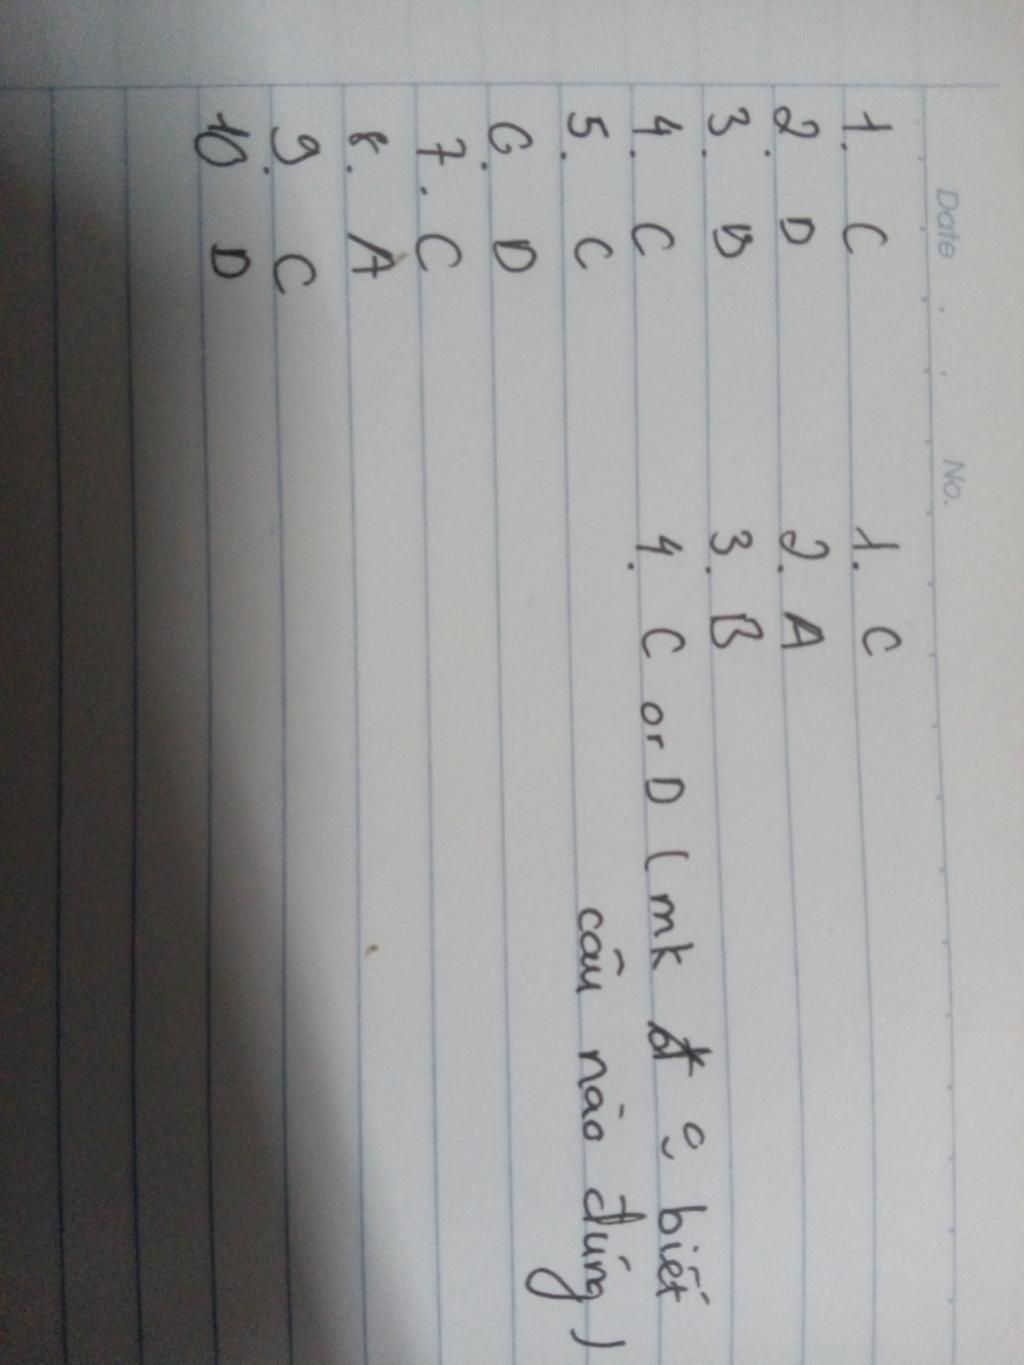 Date . . No.
1. C
2. D
3. B
4. C
5. C
6. D
7. C
8. A
9. C
10. D
1. C
2. A
3. B
4. C or D (mk biết
câu nào đúng)